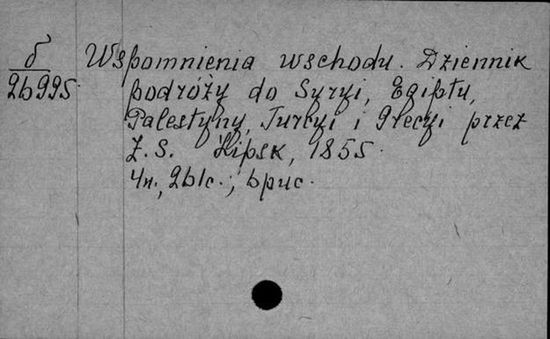 б
26995
Wspomnienia wschodu. Dziennik
podróży do Syryi, Egiptu,
Palestyny, Turcyi i Grecyi przez
Z. S. Lipsk, 1855.
4н., 261с.; 6рис.